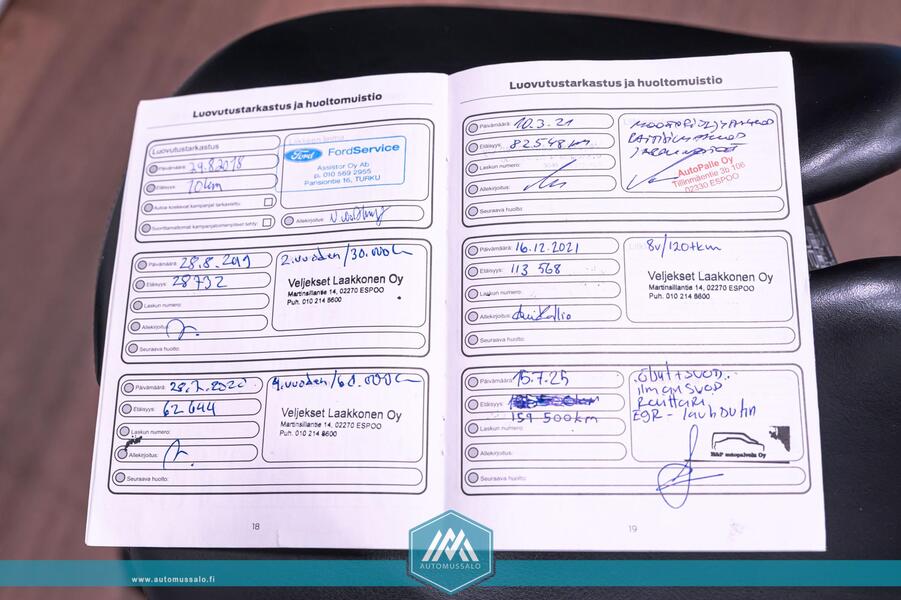 Luovutustarkastus ja huoltomuistio
Luovutustarkastus
Päivämäärä: 29.8.2018
Etäisyys: 10km
Autoa koskevat kampanjat tarkastettu:
Suorittamattomat kampanjatoimenpiteet tehty:
Ford FordService
Assistor Oy Ab
p. 010 569 2955
Pansiontie 16, TURKU
Allekirjoitus:
Päivämäärä: 28.8.2019
Etäisyys: 28792
Laskun numero:
Allekirjoitus:
Seuraava huolto:
2.vuoden/30.000
Veljekset Laakkonen Oy
Martinsillantie 14, 02270 ESPOO
Puh. 010 214 8600
Päivämäärä:
Etäisyys: 62644
Laskun numero:
Allekirjoitus:
Seuraava huolto:
4.vuoden/60.000
Veljekset Laakkonen Oy
Martinsillantie 14, 02270 ESPOO
Puh. 010 214 8600
18
Luovutustarkastus ja huoltomuistio
Päivämäärä: 10.3.21
Etäisyys: 82548 km
Laskun numero:
Allekirjoitus:
Seuraava huolto:
AutoPalle Oy
Tillinmäentie 3b 106
02330 ESPOO
Päivämäärä: 16.12.2021
Etäisyys: 113 568
Laskun numero:
Allekirjoitus:
Seuraava huolto:
8v/120tkm
Veljekset Laakkonen Oy
Martinsillantie 14, 02270 ESPOO
Puh. 010 214 8600
Päivämäärä: 15.7.25
Etäisyys:
159 500km
Laskun numero:
Allekirjoitus:
Seuraava huolto:
öljyt+suod.
ilmansuod
Raittari
EGR-
H&P autopalvelu Oy
19
AUTOMUSSALO
www.automussalo.fi